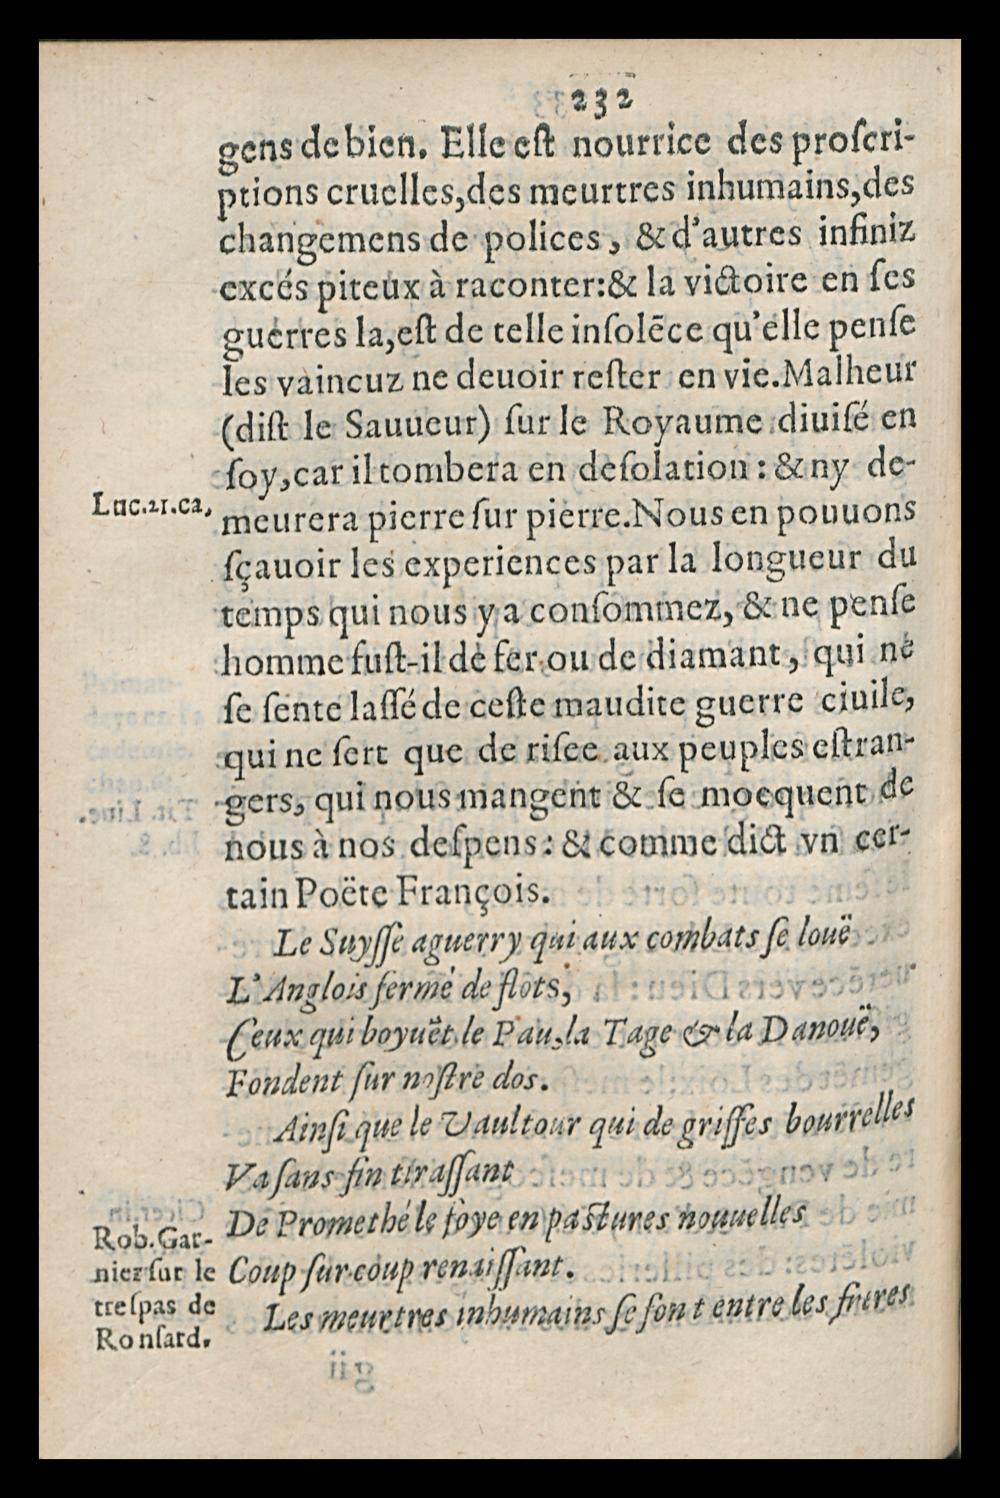 232
gens de bien. Elle eſt nourrice des proſcri-
ptions cruelles, des meurtres inhumains, des
changemens de polices, & d'autres infiniz
excés piteux à raconter: & la victoire en ſes
guerres la, eſt de telle inſolēce qu'elle penſe
les vaincuz ne deuoir reſter en vie. Malheur
(diſt le Sauueur) ſur le Royaume diuiſé en
ſoy, car il tombera en deſolation: & ny de-
Luc.21.ca,
meurera pierre ſur pierre. Nous en pouuons
ſçauoir les experiences par la longueur du
temps qui nous y a conſommez, & ne penſe
homme fuſt-il de fer ou de diamant, qui ne
ſe ſente laſſé de ceſte maudite guerre ciuile,
qui ne ſert que de riſee aux peuples eſtran-
gers, qui nous mangent & ſe mocquent de
nous à nos deſpens: & comme dict vn cer-
tain Poëte François.
Le Suyſſe aguerry qui aux combats ſe louë
L'Anglois fermé de flots,
Ceux qui boyuēt le Pau, la Tage & la Danouë,
Fondent ſur noſtre dos.
Ainſi que le Vaultour qui de griffes bourrelles
Va ſans fin tiraſſant
De Promethé le foye en paſtures nouuelles
Coup ſur coup renaiſſant.
Les meurtres inhumains ſe font entre les freres
Rob. Gar-
nier ſur le
treſpas de
Ronſard.